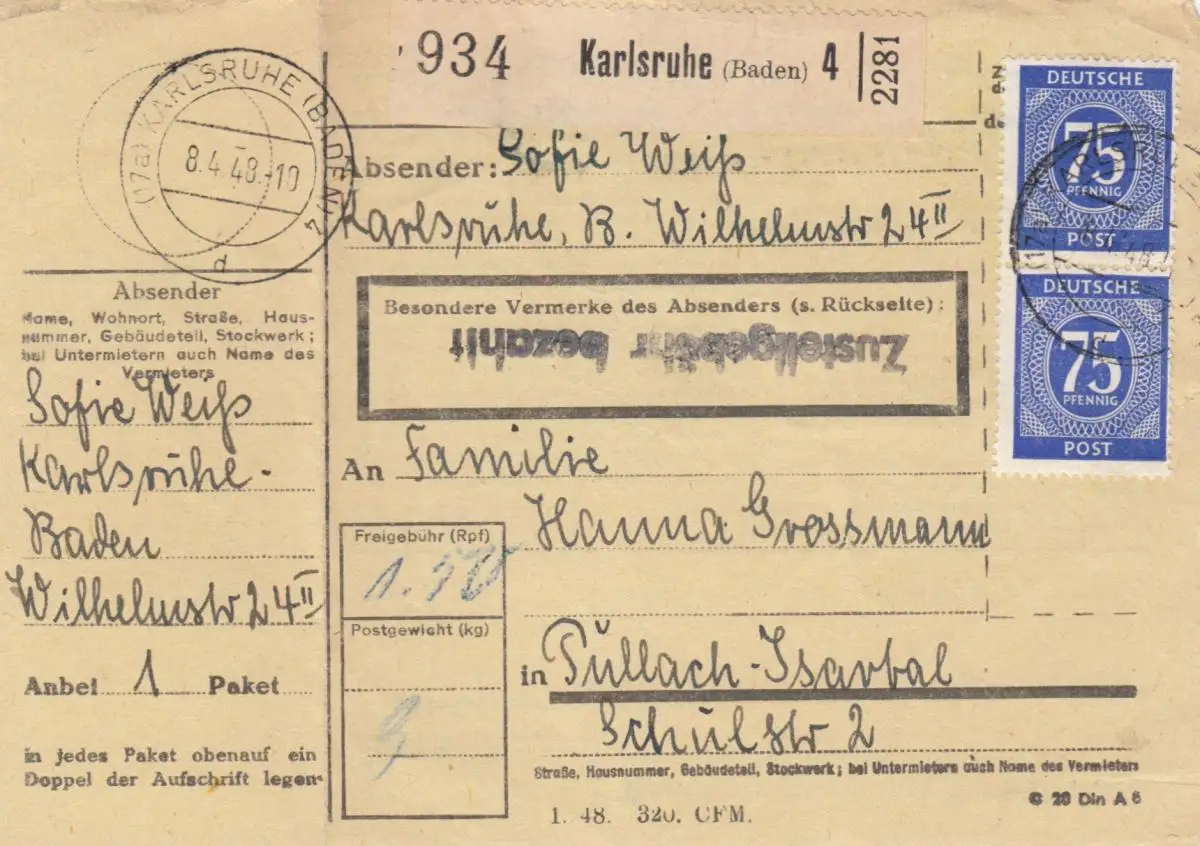 934 Karlsruhe (Baden) 4 2281
(17a) KARLSRUHE (BADEN) 2
8.4.48.-10
d
DEUTSCHE
75
PFENNIG
POST
DEUTSCHE
75
PFENNIG
POST
Absender: Sofie Weiß
Karlsruhe, B. Wilhelmstr 24 II
Besondere Vermerke des Absenders (s. Rückseite):
Zustellgebühr bezahlt
Absender
Name, Wohnort, Straße, Haus-
nummer, Gebäudeteil, Stockwerk;
bei Untermietern auch Name des
Vermieters
Sofie Weiß
Karlsruhe-
Baden
Wilhelmstr 24 II
Anbei 1 Paket
in jedes Paket obenauf ein
Doppel der Aufschrift legen
An Familie
Hanna Grossmann
Freigebühr (Rpf)
1.50
Postgewicht (kg)
in Pullach-Isartal
Schulstr 2
Straße, Hausnummer, Gebäudeteil, Stockwerk; bei Untermietern auch Name des Vermieters
C 20 Din A 6
1. 48. 320. CFM.